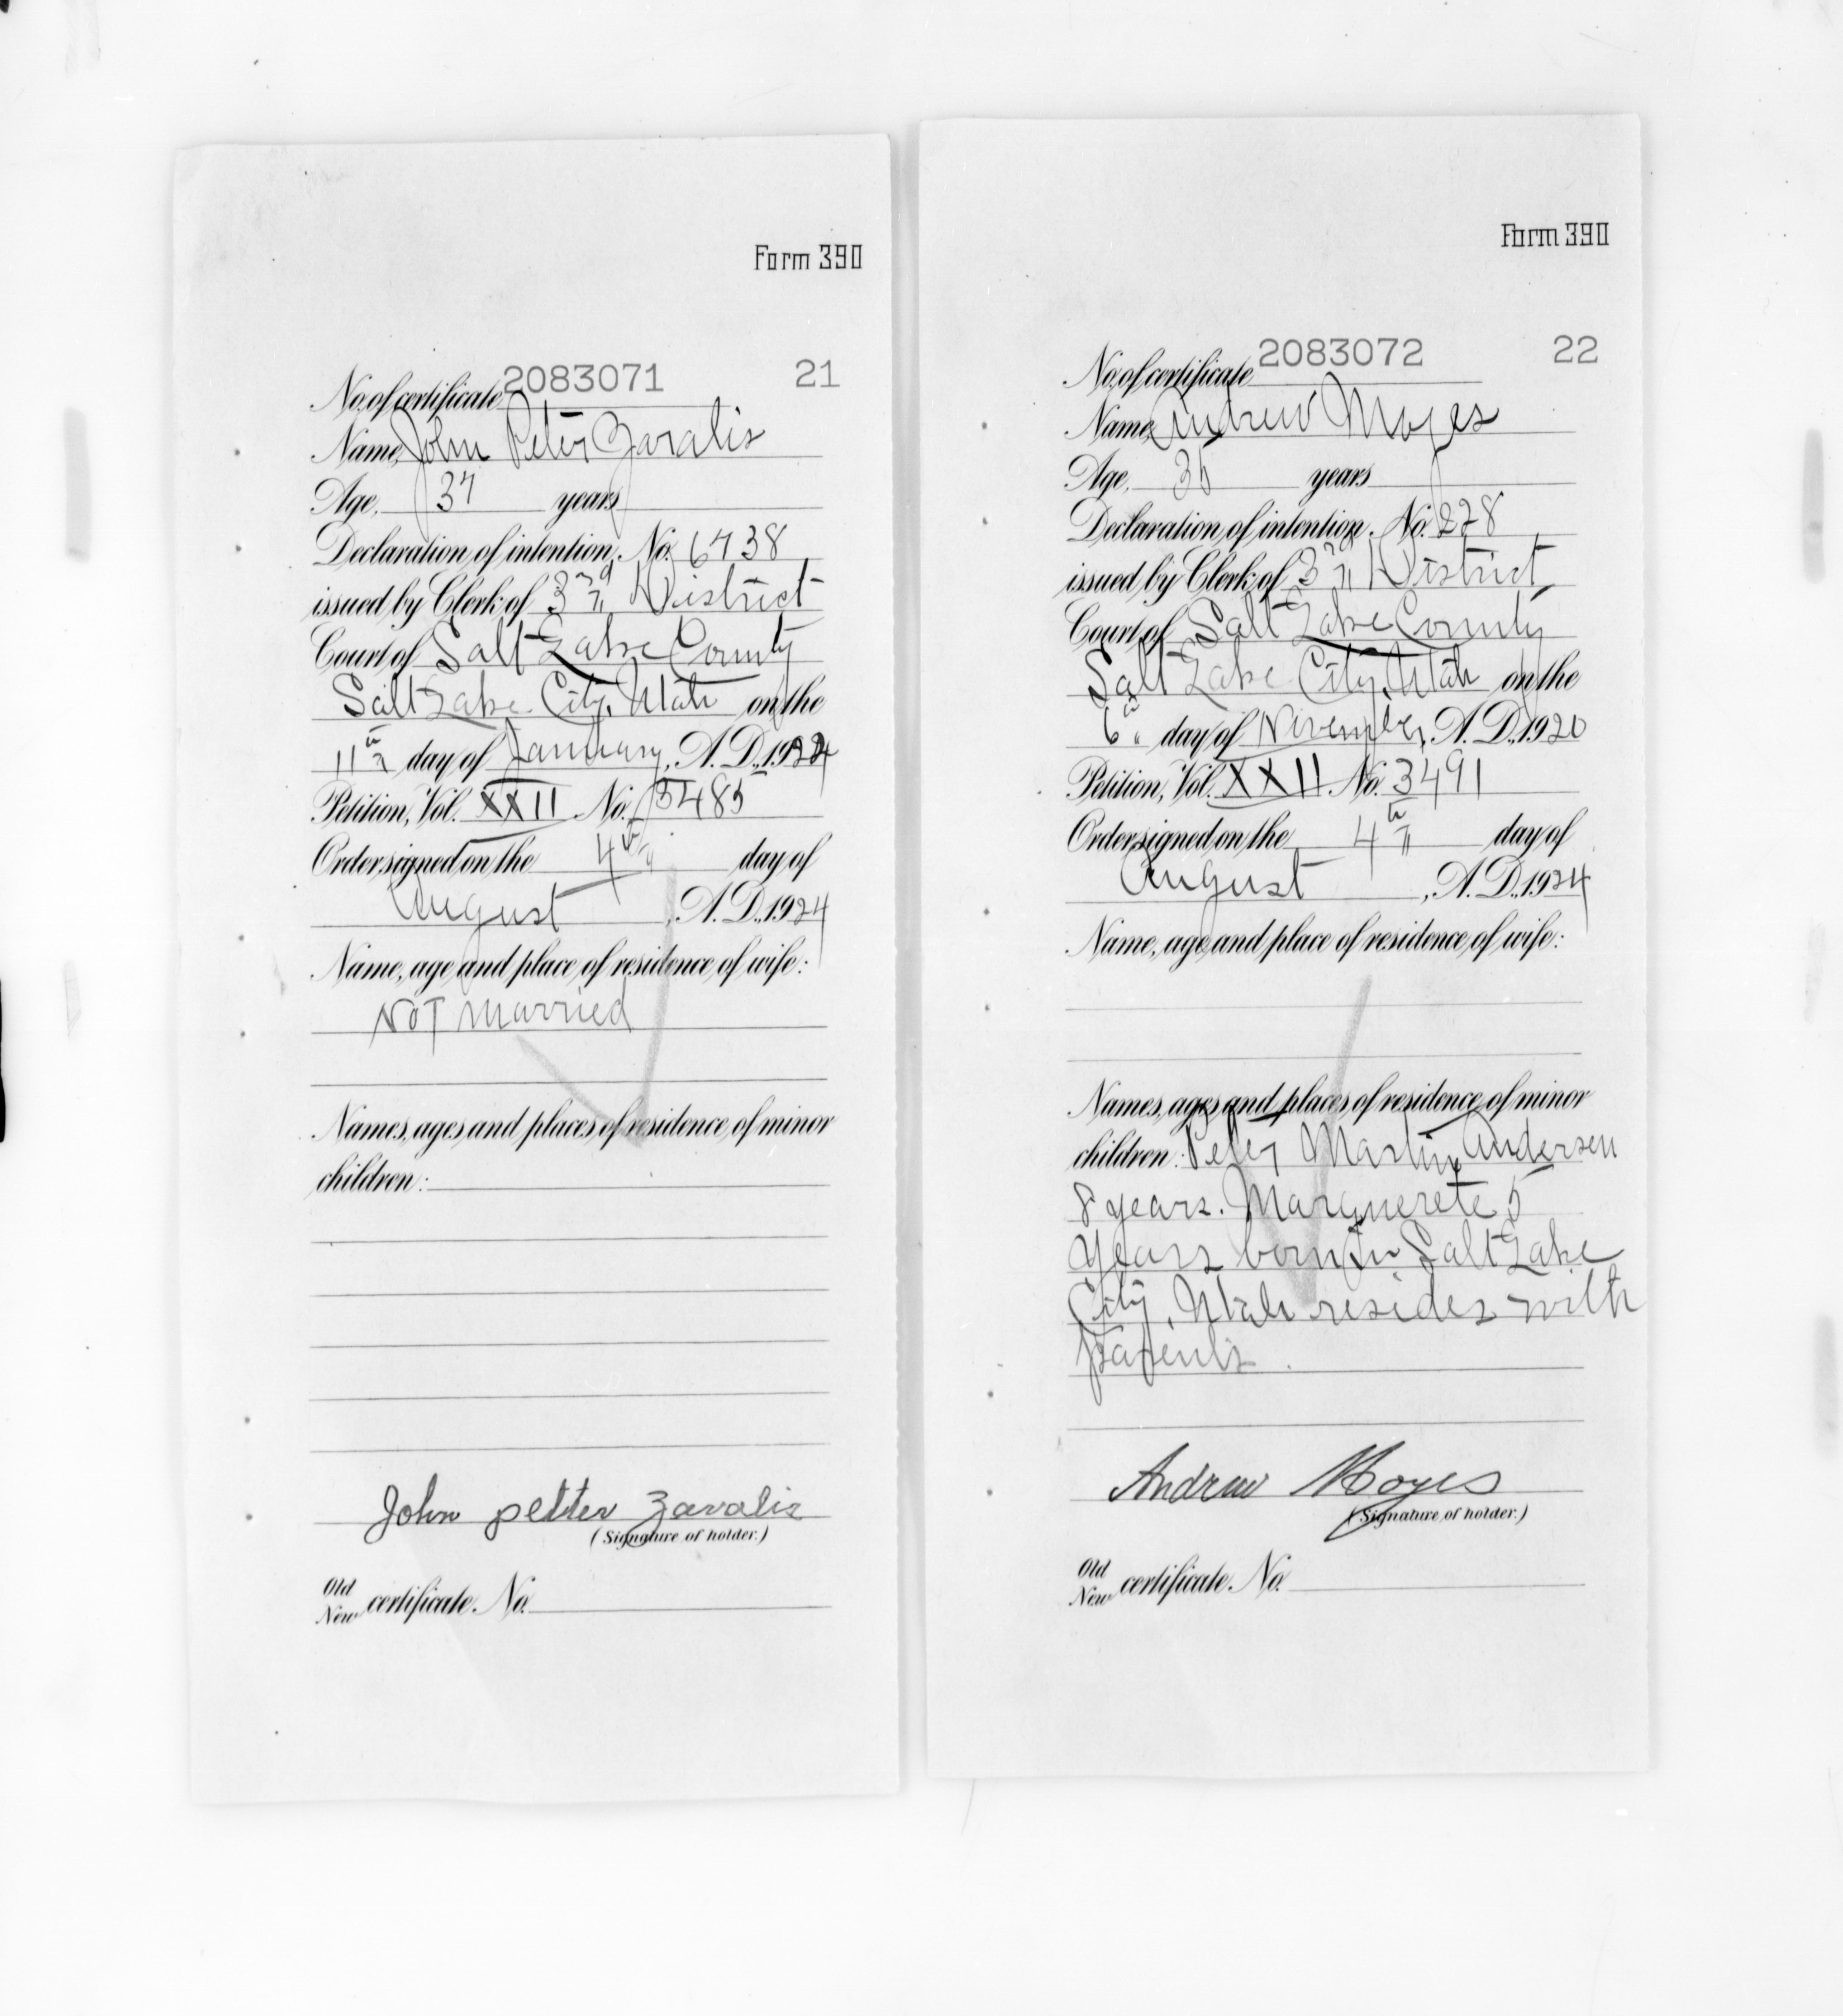 Form 390
No. of certificate 2083071 21
Name, John Peter Zavalis
Age, 37 years
Declaration of intention, No. 6738
issued by Clerk of 3rd District
Court of Salt Lake County
Salt Lake City, Utah on the
11th day of January, A. D., 1924
Petition, Vol. XXII No. 3485
Order signed on the 4th day of
August, A. D., 1924
Name, age and place of residence of wife:
Not Married
Names, ages and places of residence of minor
children:
John petter Zavalis
(Signature of holder.)
Old
New certificate. No.
Form 390
No. of certificate 2083072 22
Name, Andrew Moyes
Age, 35 years
Declaration of intention, No. 228
issued by Clerk of 3rd District
Court of Salt Lake County
Salt Lake City, Utah on the
6th day of November, A. D., 1920
Petition, Vol. XXII No. 3491
Order signed on the 4th day of
August, A. D., 1924
Name, age and place of residence of wife:
Names, ages and places of residence of minor
children: Peter Martin Andersen
8 years. Marguerete 5
years born in Salt Lake
City, Utah resides with
parents.
Andrew Moyes
(Signature of holder.)
Old
New certificate. No.